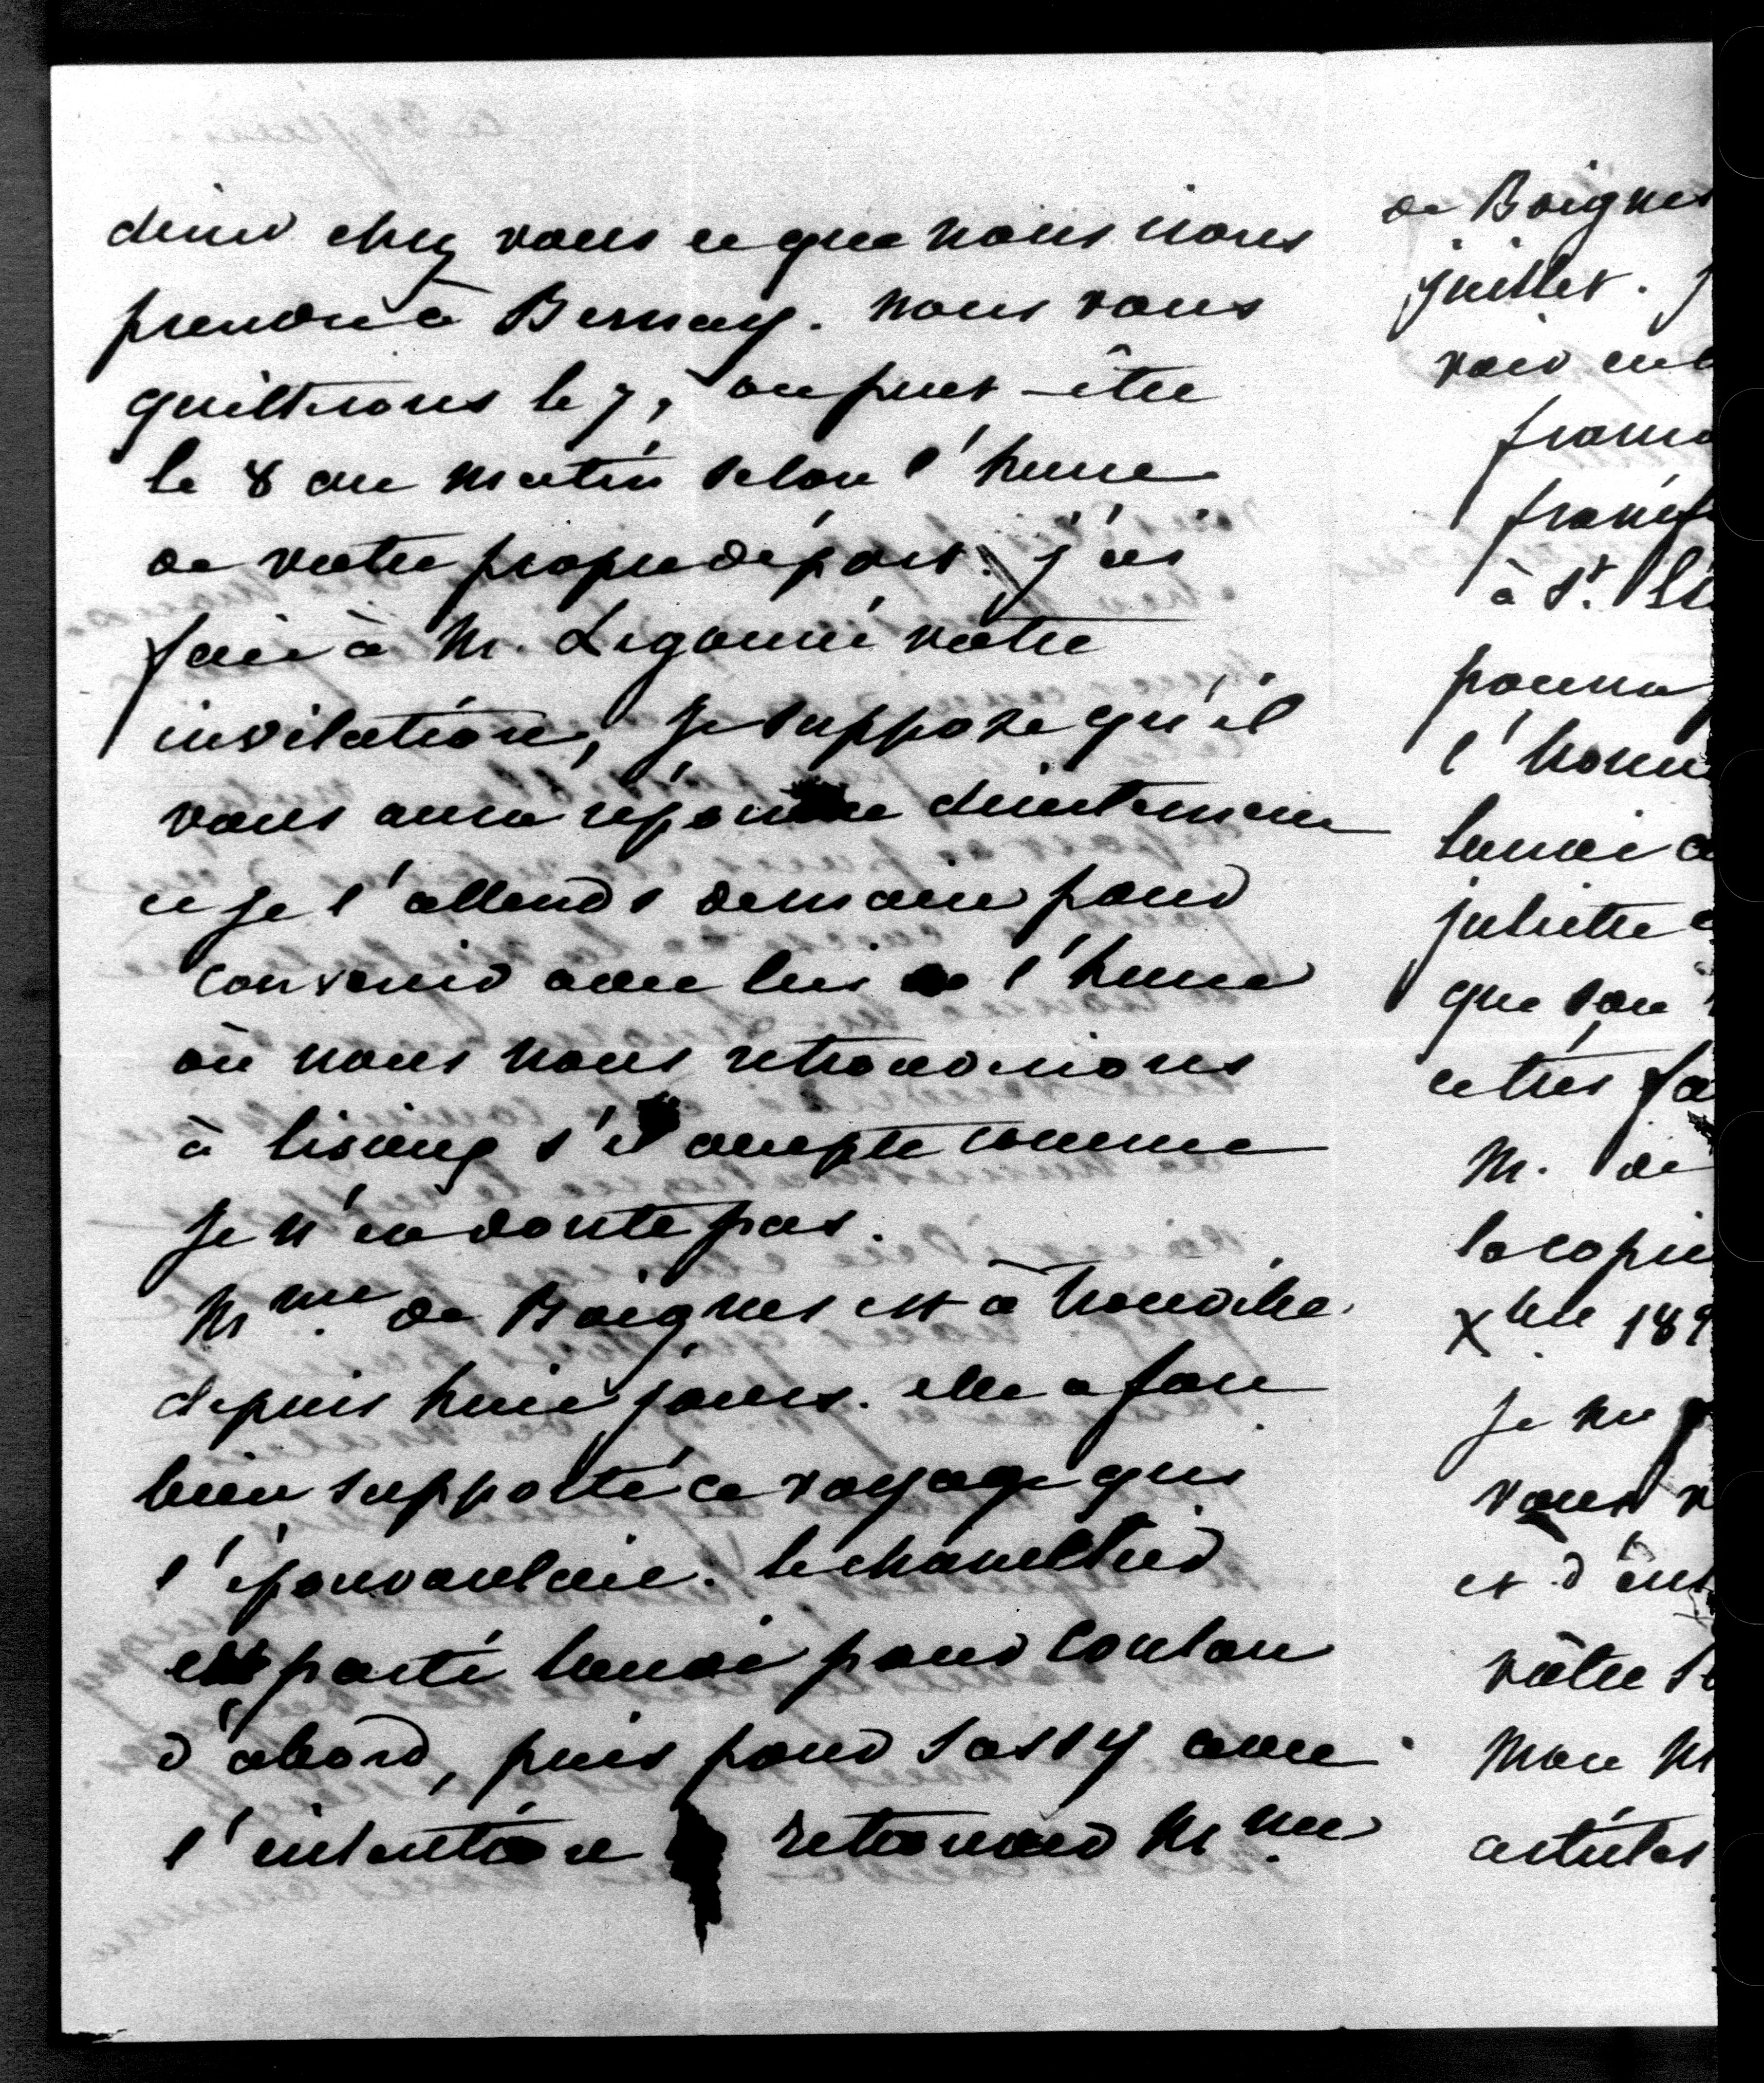 diner chez vous et que nous irons
prendre à Bernay. nous vous
quitterons le 7, ou peut-être
le 8 au matin selon l'heure
de votre propre départ. j'ai
fait à M. Legouvé votre
invitation, je suppose qu'il
vous aura répondu directement
et je l'attends demain pour
convenir avec lui de l'heure
où nous nous retrouverions
à lisieux s'il accepte comme
je n'en doute pas.
Mme de Boignes est à trouville
depuis huit jours. elle a fort
bien supporté ce voyage qui
l'épouvantait. le chancellier
est parti lundi pour
d'abord, puis pour Sassy avec
l'intention retrouver Mme
de Boignes
juillet. j
voir
à St.
pourra
l'hom
lundi
juliette
que son
et très fa
M. de
la copie
Xbre 18
je ne
vous
et d'
vôtre
Mon
articles